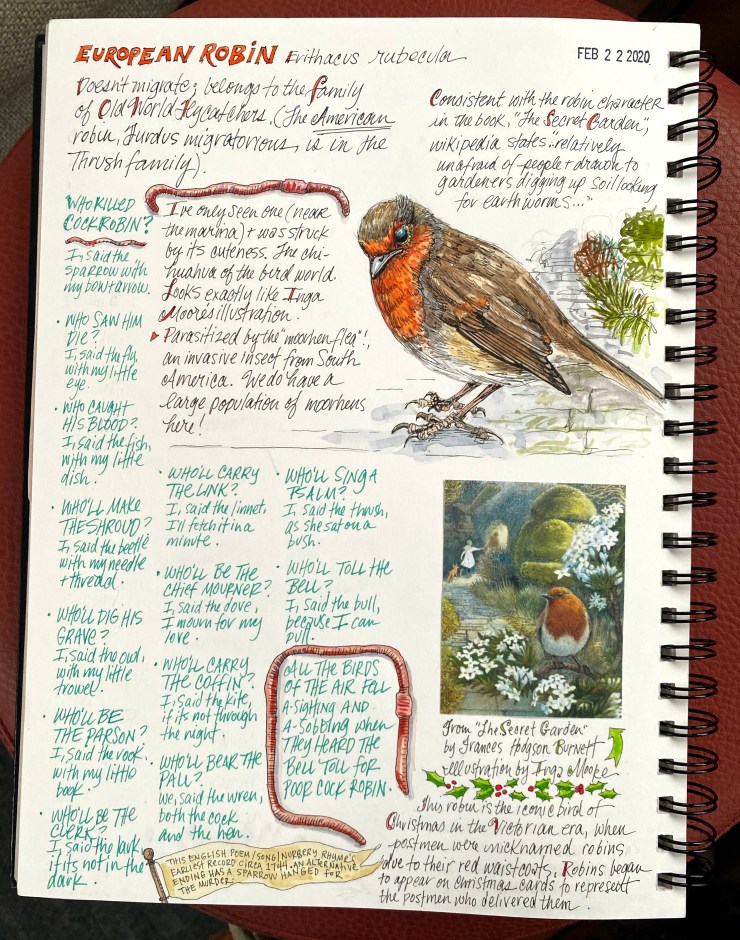 EUROPEAN ROBIN Erithacus rubecula
FEB 22 2020
Doesn't migrate; belongs to the family
of Old World Flycatchers. (The American
robin, Turdus migratorious, is in the
Thrush family).
Consistent with the robin character
in the book, "The Secret Garden",
wikipedia states "relatively
unafraid of people + drawn to
gardeners digging up soil looking
for earthworms..."
WHO KILLED
COCK ROBIN?
I, said the
sparrow with
my bow + arrow.
• WHO SAW HIM
DIE?
I, said the fly,
with my little
eye.
• WHO CAUGHT
HIS BLOOD?
I, said the fish,
with my little
dish.
• WHO'LL MAKE
THE SHROUD?
I, said the beetle
with my needle
+ thread.
• WHO'LL DIG HIS
GRAVE?
I, said the owl,
with my little
trowel.
• WHO'LL BE
THE PARSON?
I, said the rook
with my little
book.
• WHO'LL BE THE
CLERK?
I, said the lark,
if it's not in the
dark.
I've only seen one (near
the marina) + was struck
by its cuteness. The chi-
huahua of the bird world.
Looks exactly like Inga
Moore's illustration.
Parasitized by the "moorhen flea"!,
an invasive insect from South
America. We do have a
large population of moorhens
here!
• WHO'LL CARRY
THE LINK?
I, said the linnet,
I'll fetch it in a
minute.
• WHO'LL BE THE
CHIEF MOURNER?
I, said the dove,
I mourn for my
love.
• WHO'LL CARRY
THE COFFIN?
I, said the kite,
if it's not through
the night.
• WHO'LL BEAR THE
PALL?
We, said the wren,
both the cock
and the hen.
• WHO'LL SING A
PSALM?
I, said the thrush,
as she sat on a
bush.
• WHO'LL TOLL THE
BELL?
I, said the bull,
because I can
pull.
ALL THE BIRDS
OF THE AIR FELL
A-SIGHING AND
A-SOBBING WHEN
THEY HEARD THE
BELL TOLL FOR
POOR COCK ROBIN.
THIS ENGLISH POEM/SONG/NURSERY RHYME'S
EARLIEST RECORD CIRCA 1744. AN ALTERNATIVE
ENDING HAS A SPARROW HANGED FOR
THE MURDER.
From "The Secret Garden"
by Frances Hodgson Burnett
Illustration by Inga Moore
This robin is the iconic bird of
Christmas in the Victorian era, when
postmen were nicknamed robins
due to their red waistcoats. Robins began
to appear on Christmas cards to represent
the postmen who delivered them.